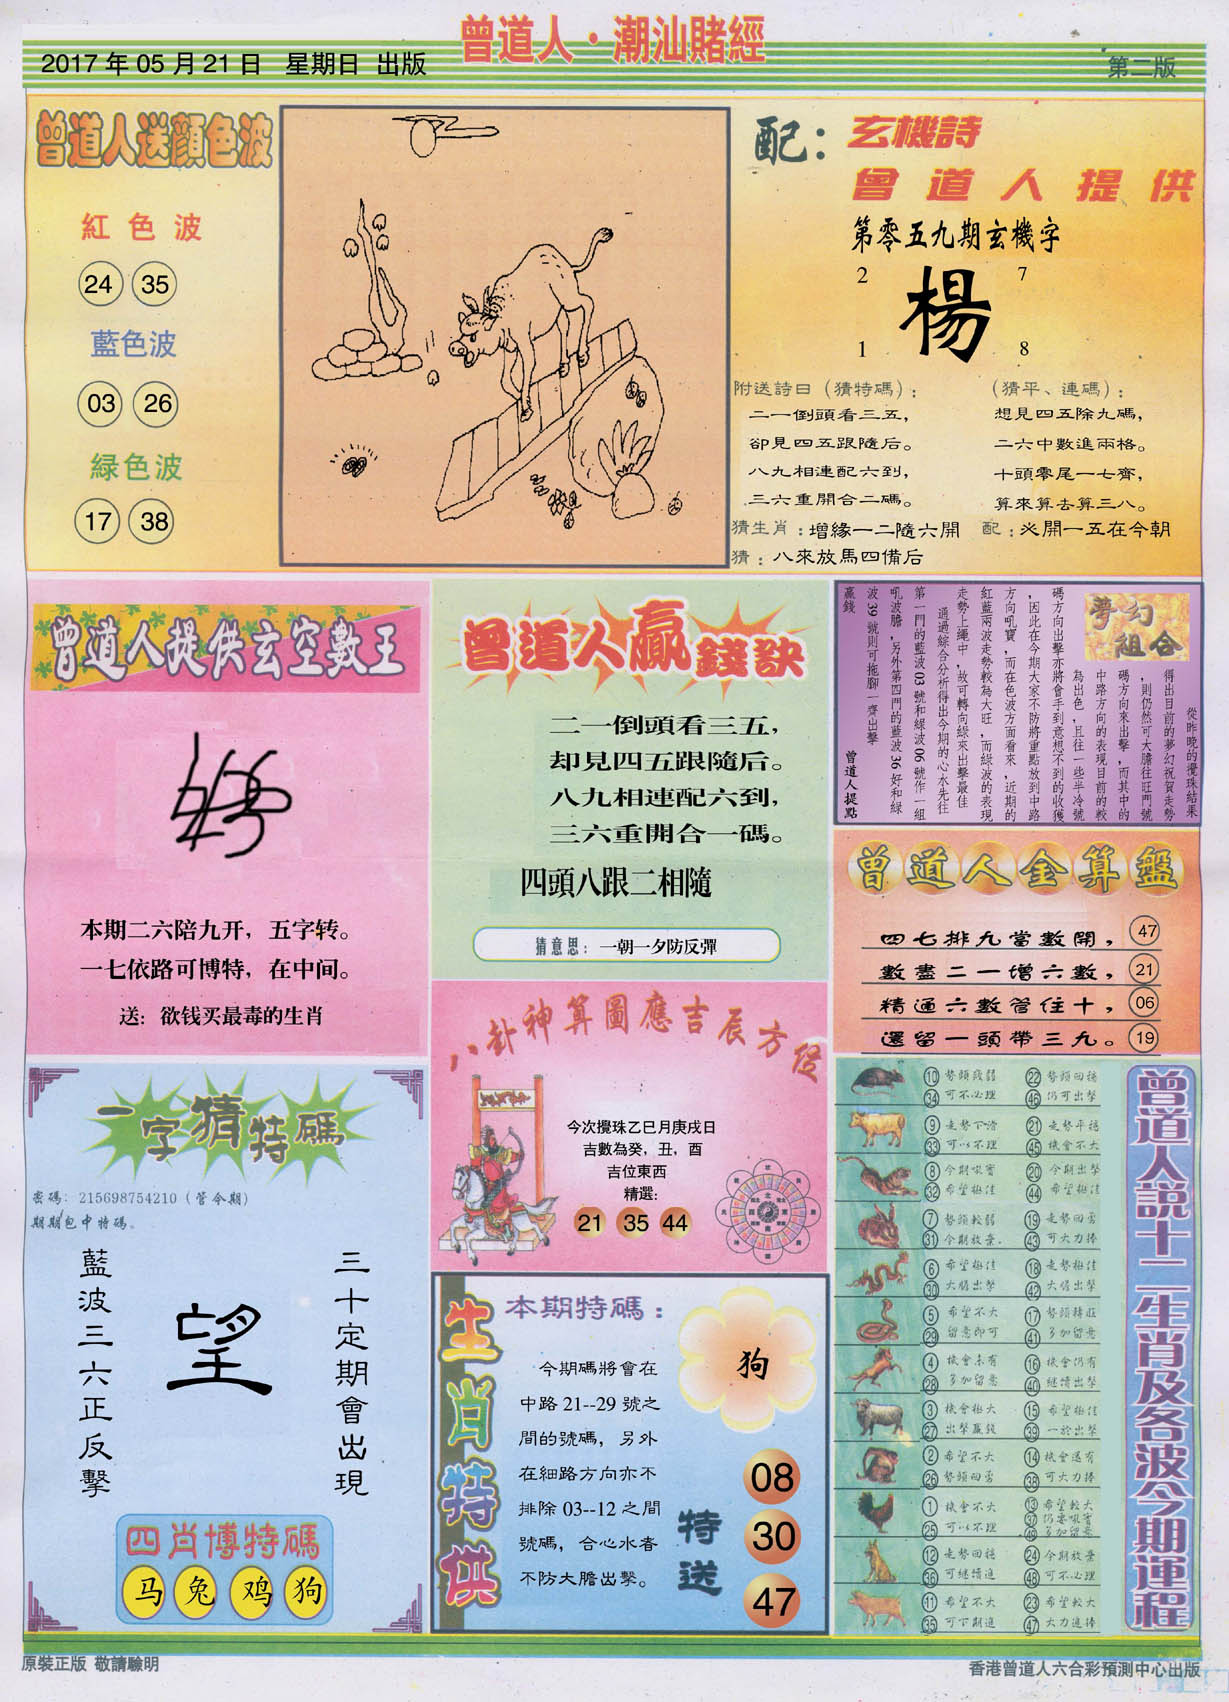 曾道人·潮汕賭經
2017 年 05 月 21 日 星期日 出版
第二版
曾道人送顔色波
紅色波
24 35
藍色波
03 26
緑色波
17 38
配：
玄機詩
曾道人提供
第零五九期玄機字
2 7
楊
1 8
附送詩曰（猜特碼）：
二一倒頭看三五，
卻見四五跟隨后。
八九相連配六到，
三六重開合二碼。
（猜平、連碼）：
想見四五除九碼，
二六中數進兩格。
十頭零尾一七齊，
算來算去算三八。
猜生肖：增緣一二隨六開
配：必開一五在今朝
猜：八來放馬四備后
曾道人提供玄空數王
本期二六陪九开，五字转。
一七依路可博特，在中间。
送：欲钱买最毒的生肖
曾道人贏錢訣
二一倒頭看三五，
却見四五跟隨后。
八九相連配六到，
三六重開合一碼。
四頭八跟二相隨
猜意思：一朝一夕防反彈
夢幻
組合
從昨晚的攪珠結果
得出目前的夢幻祝賀走勢
，則仍然可大膽往旺門號
碼方向來出擊，而其中的
中路方向的表現目前的較
為出色，且往一些半冷號
碼方向出擊亦將會手到意想不到的收獲
，因此在今期大家不防將重點放到中路
方向吼寶，而在色波方面看來，近期的
紅藍兩波走勢較為大旺，而綠波的表現
走勢上繩中，故可轉向綠來出擊最佳
通過綜合分析得出今期的心水先往
第一門的藍波 03 號和綠波 06 號作一組
吼波膽，另外第四門的藍波 36 好和綠
波 39 號則可拖腳一齊出擊
贏錢
曾道人提點
曾道人金算盤
四七排九當數開， 47
數盡二一增六數， 21
精通六數管住十， 06
還留一頭帶三九。 19
八卦神算圖應吉辰方位
今次攪珠乙巳月庚戌日
吉數為癸，丑，酉
吉位東西
精選：
21 35 44
一字猜特碼
密碼：215698754210（管今期）
期期包中特碼。
三十定期會出現
望
藍波三六正反擊
四肖博特碼
马 兔 鸡 狗
生肖特供
本期特碼：
今期碼將會在
中路 21--29 號之
間的號碼，另外
在細路方向亦不
排除 03--12 之間
號碼，合心水者
不防大膽出擊。
狗
特送
08
30
47
曾道人説十二生肖及各波今期運程
10 勢頭殘弱 22 勢頭回穩
34 可不必理 46 仍可出擊
9 走勢下滑 21 走勢平穩
33 可以不理 45 機會不大
8 今期吼寶 20 今期出擊
32 希望極佳 44 希望極佳
7 勢頭較弱 19 走勢回勇
31 今期放棄. 43 可大力捧
6 希望極佳 18 走勢極佳
30 大膽出擊 42 大膽出擊
5 希望不大 17 勢頭轉旺
29 留意即可 41 多加留意
4 機會未有 16 機會仍有
28 多加留意 40 繼續出擊
3 機會極大 15 希望極佳
27 出擊贏錢 39 一於出擊
2 希望不大 14 機會還有
26 勢頭回勇 38 可大力捧
1 機會不大 13 希望較大
25 可以不理 37 仍要吼寶
49 多加留意
12 走勢回穩 24 今期放棄
36 可繼續進 48 可不必理
11 希望不大 23 希望較大
35 可下期進 47 大力進捧
原裝正版 敬請驗明
香港曾道人六合彩預測中心出版